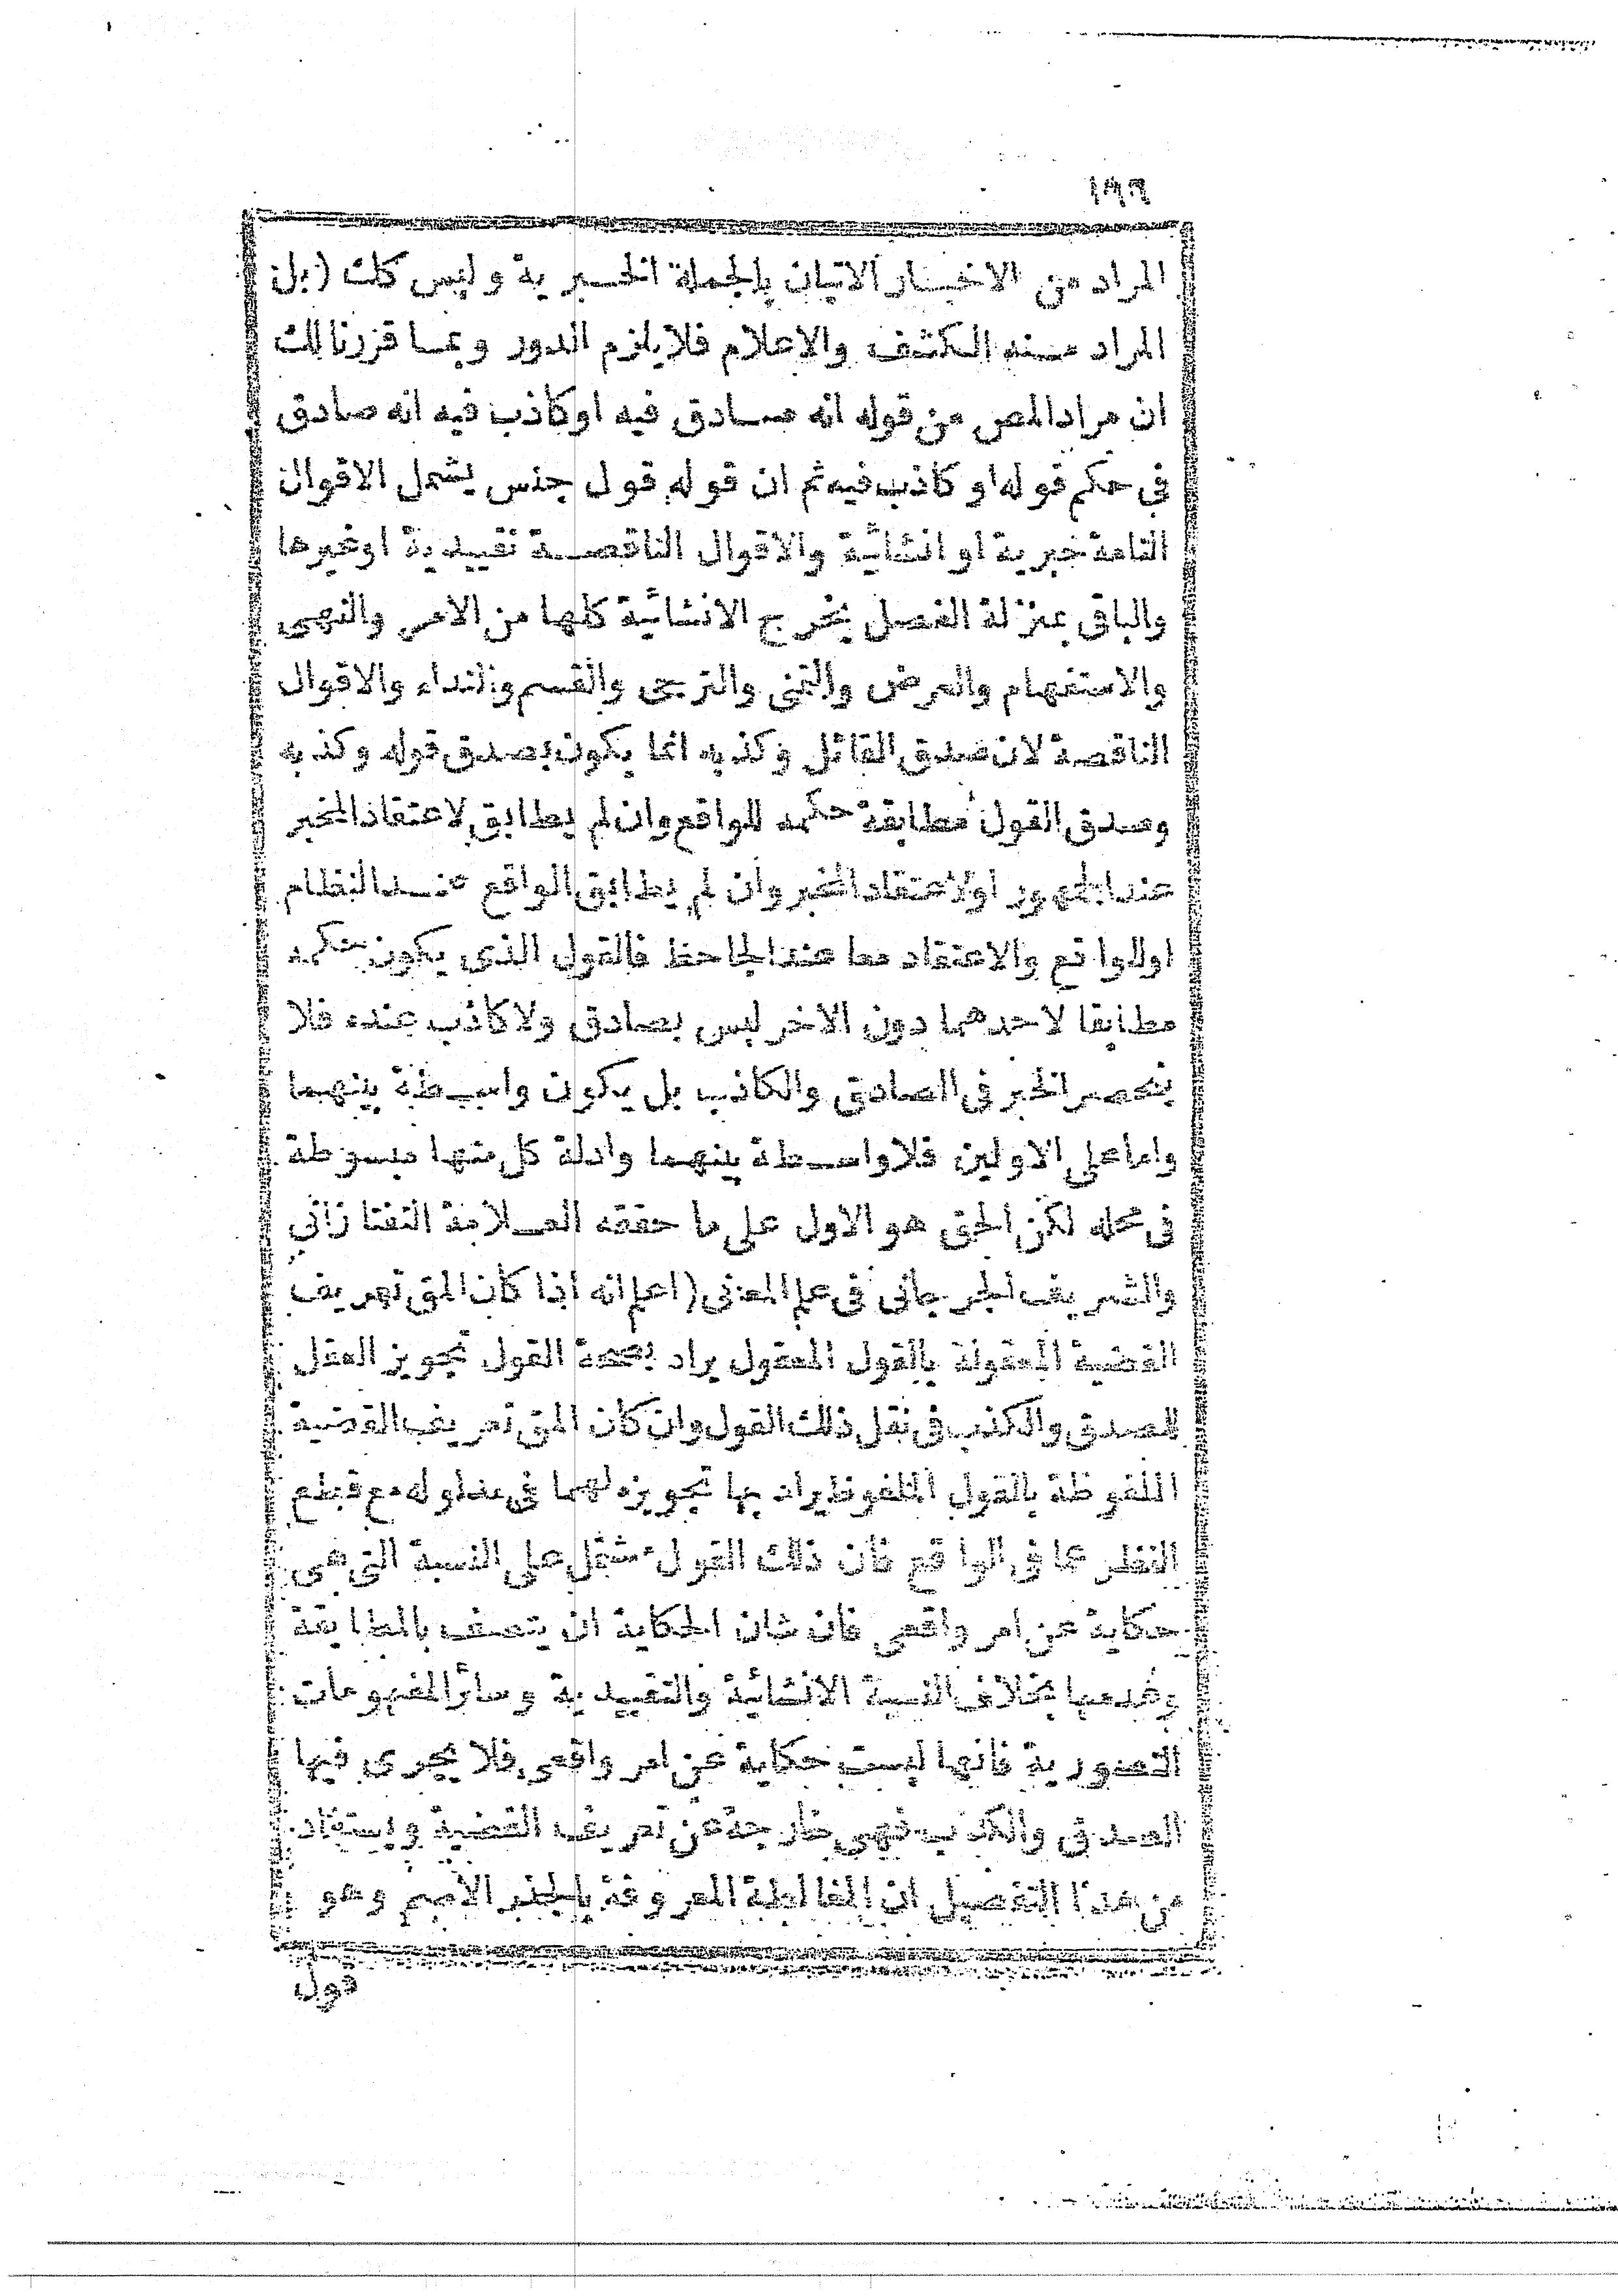 المراد من الاخبار الاتيان بالجملة الخبرية وليس كك (بل
المراد منه الكشف والاعلام فلا يلزم الدور وبما قررنا لك
ان مراد المص من قوله انه صادق فيه او كاذب فيه انه صادق
فى حكم قوله او كاذب فيه ثم ان قوله قول جنس يشمل الاقوال
التامة خبرية او انشائية والاقوال الناقصة تقييدية او غيرها
والباقى بمنزلة الفصل يخرج الانشائية كلها من الامر والنهى
والاستفهام والعرض والتمنى والترجى والقسم والنداء والاقوال
الناقصة لان صدق القائل وكذبه انما يكون بصدق قوله وكذبه
وصدق القول مطابقة حكمه للواقع وان لم يطابق لاعتقاد المخبر
عند الجمهور او لاعتقاد المخبر وان لم يطابق الواقع عند النظام
او للواقع والاعتقاد معا عند الجاحظ فالقول الذى يكون حكمه
مطابقا لاحدهما دون الاخر ليس بصادق ولا كاذب عنده فلا
ينحصر الخبر فى الصادق والكاذب بل يكون واسطة بينهما
واما على الاولين فلا واسطة بينهما وادلة كل منها مبسوطة
فى محله لكن الحق هو الاول على ما حققه العلامة التفتازانى
والشريف الجرجانى فى علم المعنى (اعلم انه اذا كان المق تعريف
القضية المعقولة بالقول المعقول يراد بصحة القول تجويز العقل
للصدق والكذب فى نقل ذلك القول وان كان المق تعريف القضية
الملفوظة بالقول الملفوظ يراد بها تجويزه لهما فى مدلوله مع قطع
النظر عما فى الواقع فان ذلك القول مشتمل على النسبة التى هى
حكاية عن امر واقعى فان شان الحكاية ان يتصف بالمطابقة
وعدمها بخلاف النسبة الانشائية والتقييدية وسائر المفهومات
التصورية فانها ليست حكاية عن امر واقعى فلا يجرى فيها
الصدق والكذب فهى خارجة عن تعريف القضية ويستفاد
من هذا التفصيل ان المغالطة المعروفة بالجذر الاصم وهو
قول